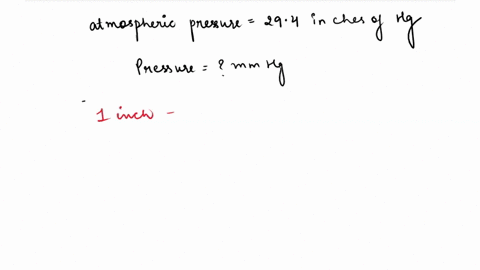 atmospheric pressure = 29.4 inches of Hg
Pressure = ? mm Hg
1 inch -